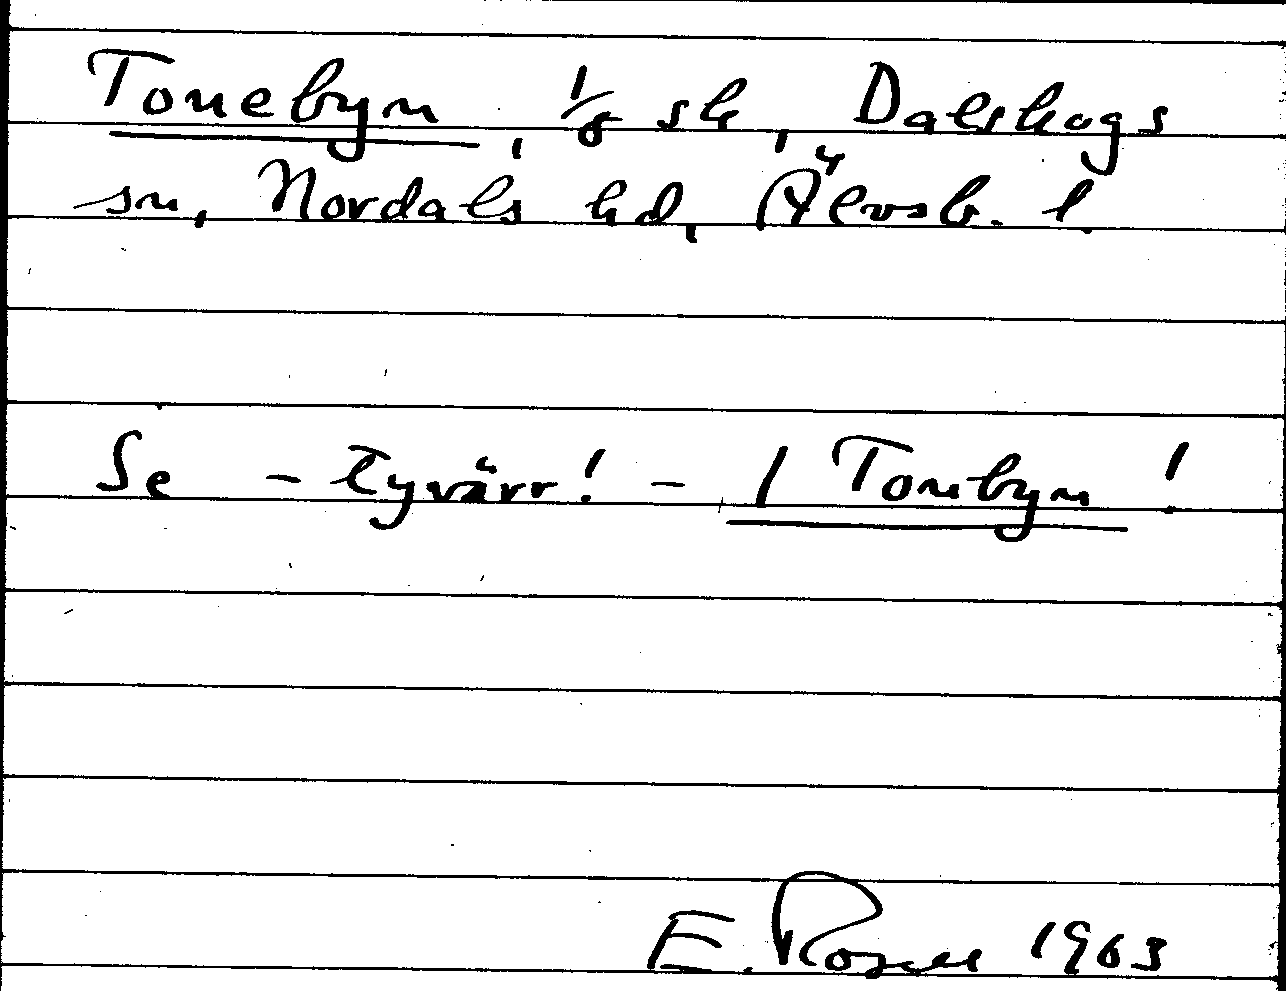 Tonebyn, 1/8 sk, Dalskogs
sn, Nordals hd, Älvsb. l.
Se - tyvärr! - 1 Tonbyn!
E. Rosell 1963